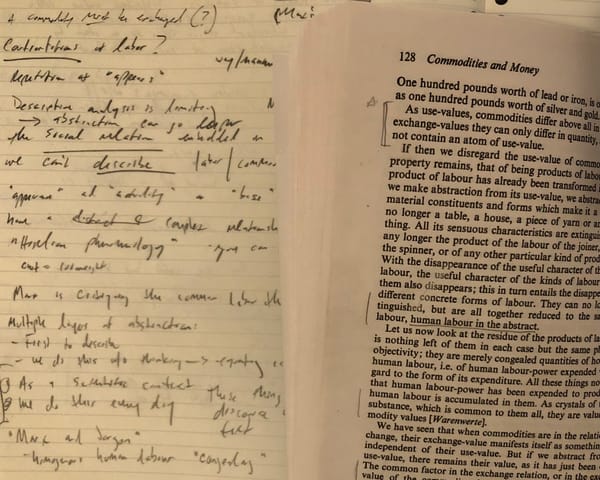 A commodity must be exchanged (?)
(Marx's
Contortions of labor?
way/manner
Repetition of "appears"
Descriptive analysis is limiting
→ abstraction can go deeper
the social relation embedded in
we can't describe labor/
"appearance" at "actuality" or "base"
have a complex relationship
"Hegelian phenomenology"
Marx is critiquing the common labor
Multiple layers of abstraction:
- First to describe
- we do this w/o thinking → equating
As a scientist
we do this every day
These things
discover
first
"Marx and Jargon"
- homogenous human labour "congealing"
128 Commodities and Money
One hundred pounds worth of lead or iron, is o
as one hundred pounds worth of silver and gold.
As use-values, commodities differ above all in
exchange-values they can only differ in quantity,
not contain an atom of use-value.
If then we disregard the use-value of commo
property remains, that of being products of labou
product of labour has already been transformed i
we make abstraction from its use-value, we abstra
material constituents and forms which make it a
no longer a table, a house, a piece of yarn or an
thing. All its sensuous characteristics are extingui
any longer the product of the labour of the joiner,
the spinner, or of any other particular kind of prod
With the disappearance of the useful character of th
labour, the useful character of the kinds of labour
them also disappears; this in turn entails the disappe
different concrete forms of labour. They can no lo
tinguished, but are all together reduced to the sa
labour, human labour in the abstract.
Let us now look at the residue of the products of la
is nothing left of them in each case but the same ph
objectivity; they are merely congealed quantities of ho
human labour, i.e. of human labour-power expended
gard to the form of its expenditure. All these things no
that human labour-power has been expended to prod
human labour is accumulated in them. As crystals of
substance, which is common to them all, they are value
modity values [Warenwerte].
We have seen that when commodities are in the relati
change, their exchange-value manifests itself as somethin
independent of their use-value. But if we abstract fro
use-value, there remains their value, as it has just been
The common factor in the exchange relation, or in the ex
value of the